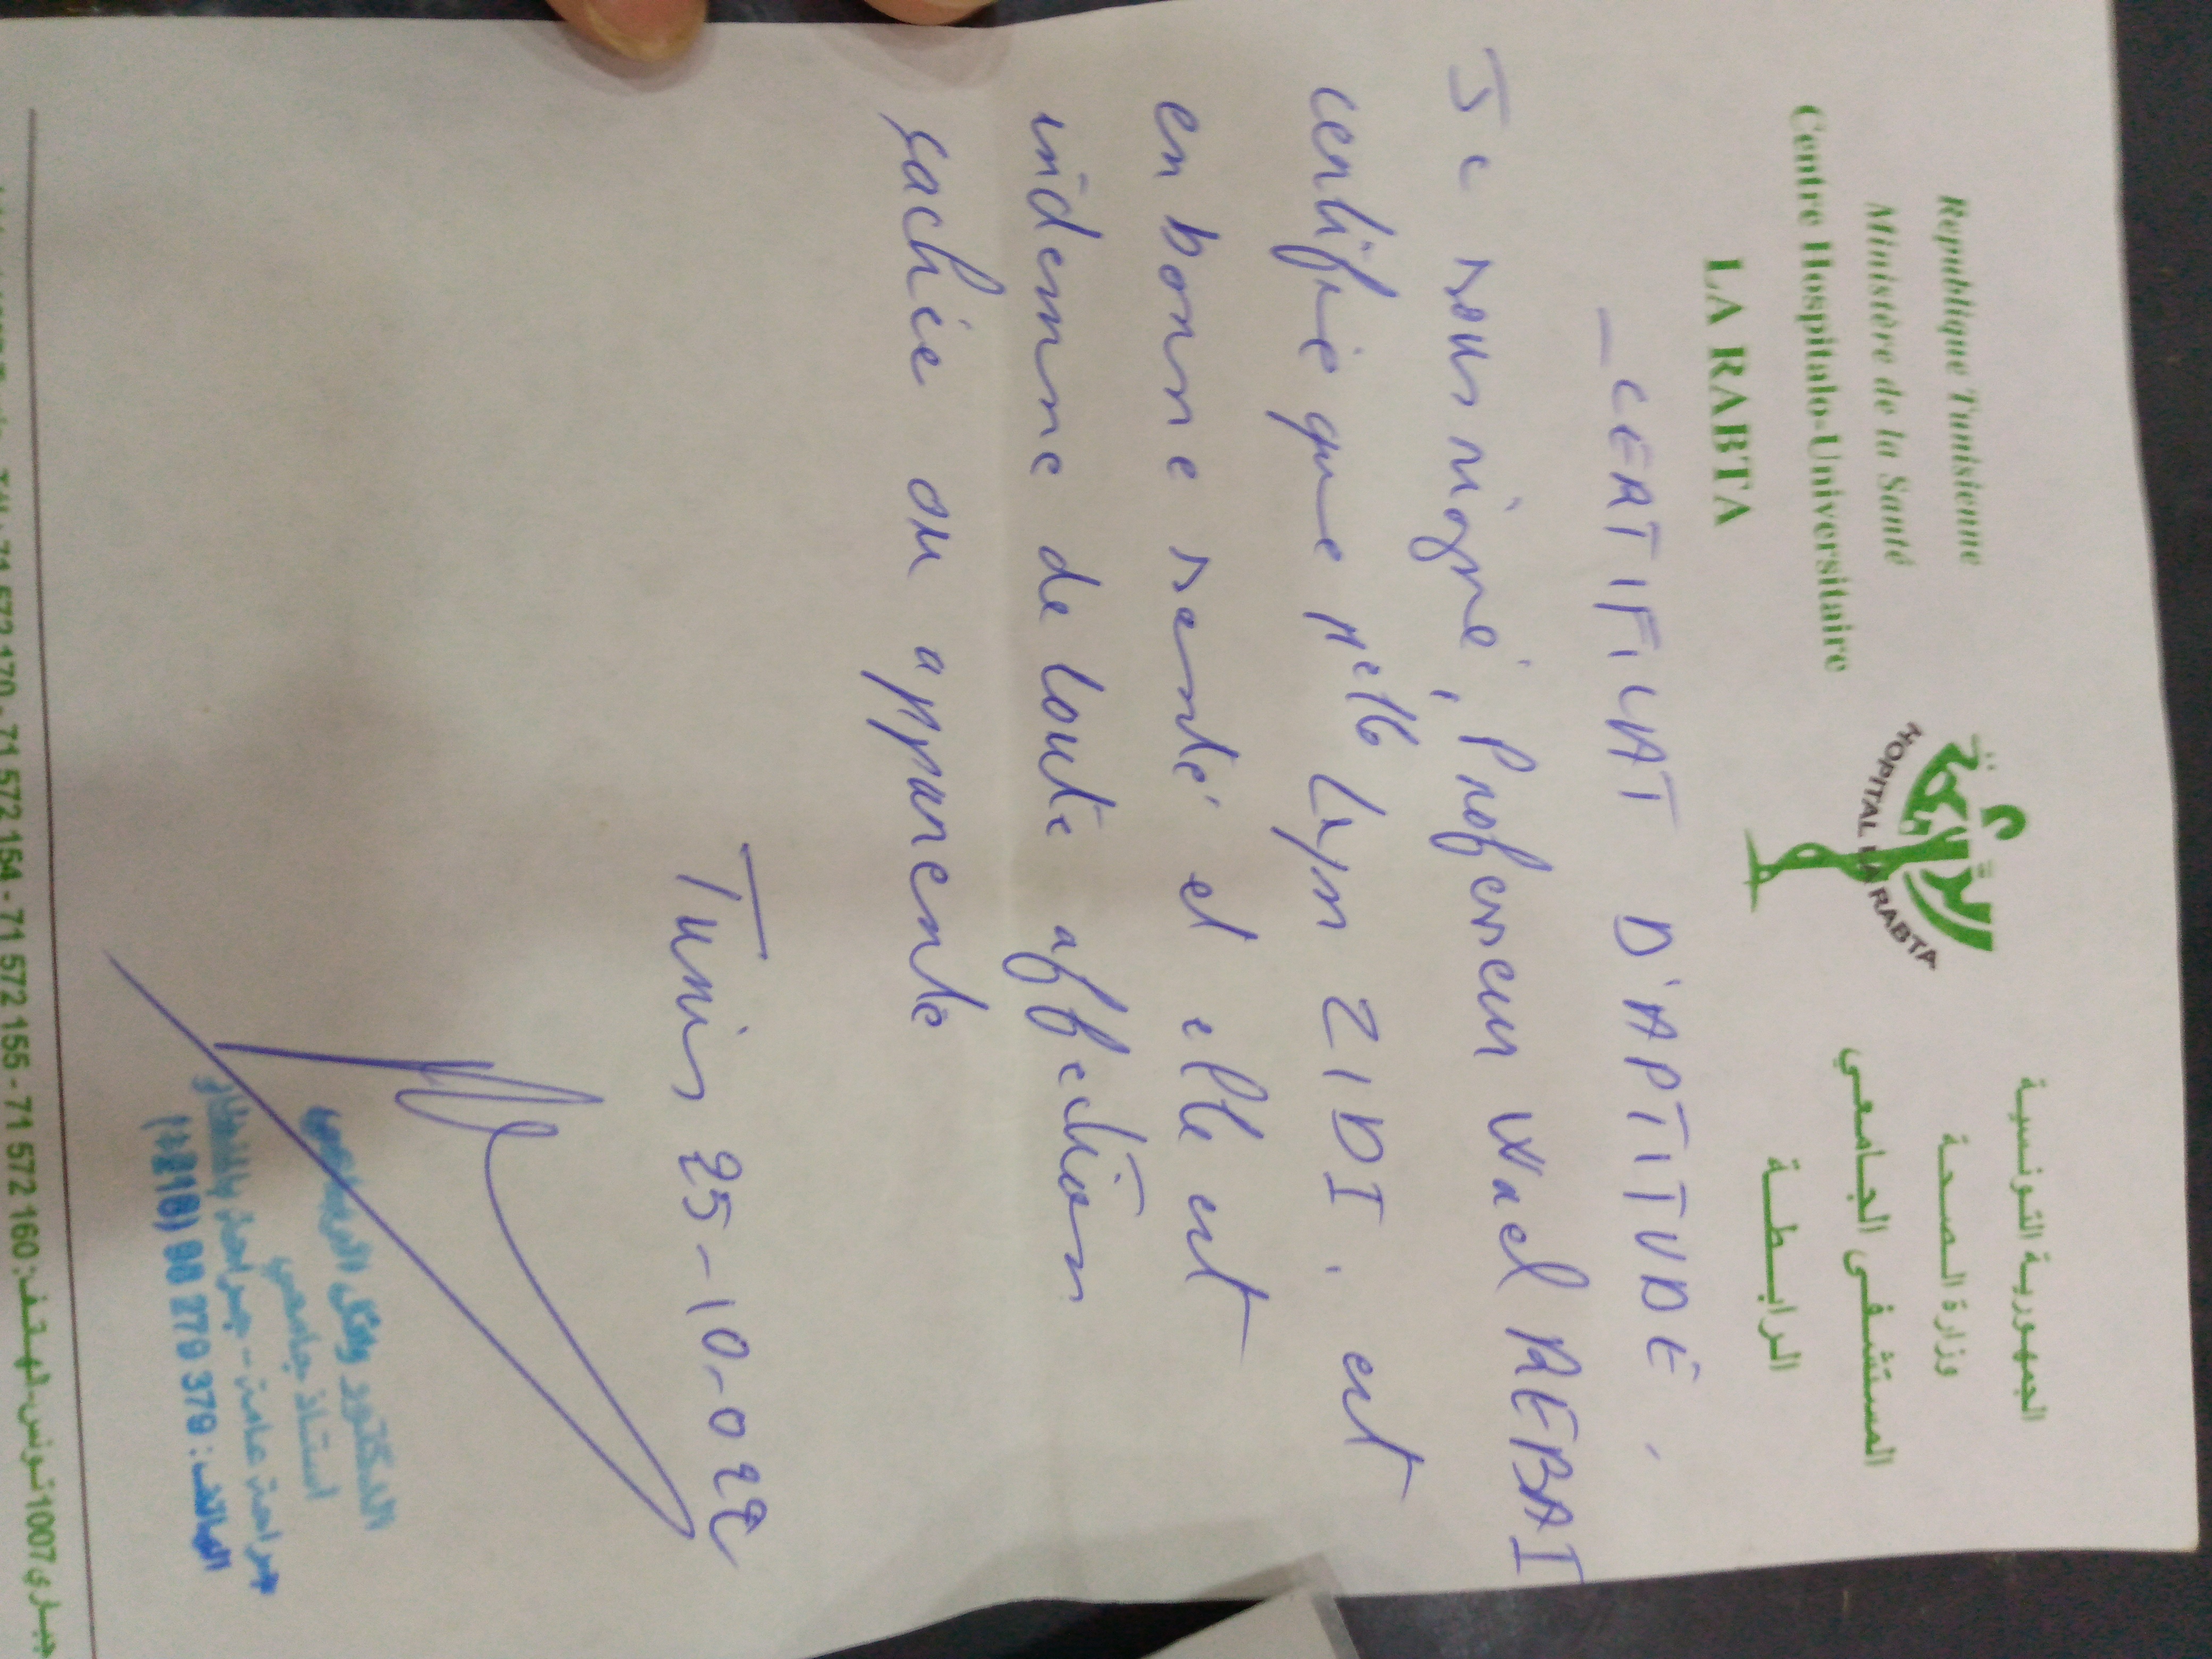 Republique Tunisienne
Ministère de la Santé
Centre Hospitalo-Universitaire
LA RABTA
HOPITAL LA RABTA
الجمهورية التونسية
وزارة الصحة
المستشفى الجامعي
الرابطة
CERTIFICAT D'APTITUDE
Je soussigné, Professeur Wael REBAI
certifie que Melle Lyn ZIDI. est
en bonne santé et elle est
indemne de toute affection
cachée ou apparente
Tunis 25-10-024
الدكتور وائل الرباعي
استاذ جامعي
جراحة عامة - جراحة بالمنظار
الهاتف: 98 279 379 (+216)
71 572 154 - 71 572 155 - 71 572 160 :الهاتف 1007 تونس